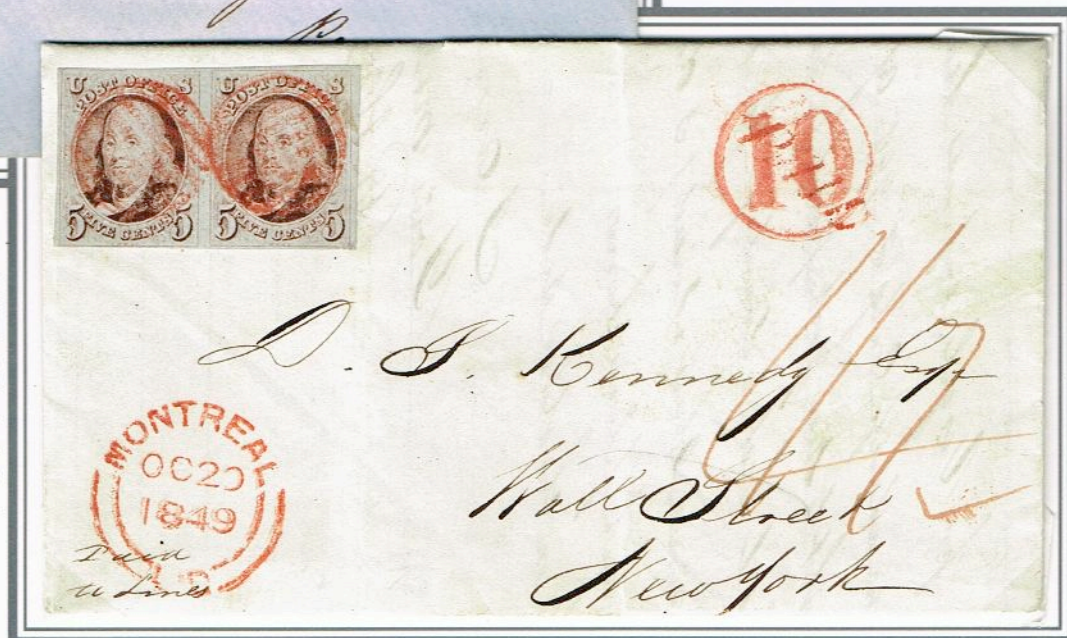 U S
POST OFFICE
5 FIVE CENTS 5
U S
POST OFFICE
5 FIVE CENTS 5
10
D. S. Kennedy Esqr
Wall Street
New York
MONTREAL
OC 20
1849
L.C
Paid
to Lines